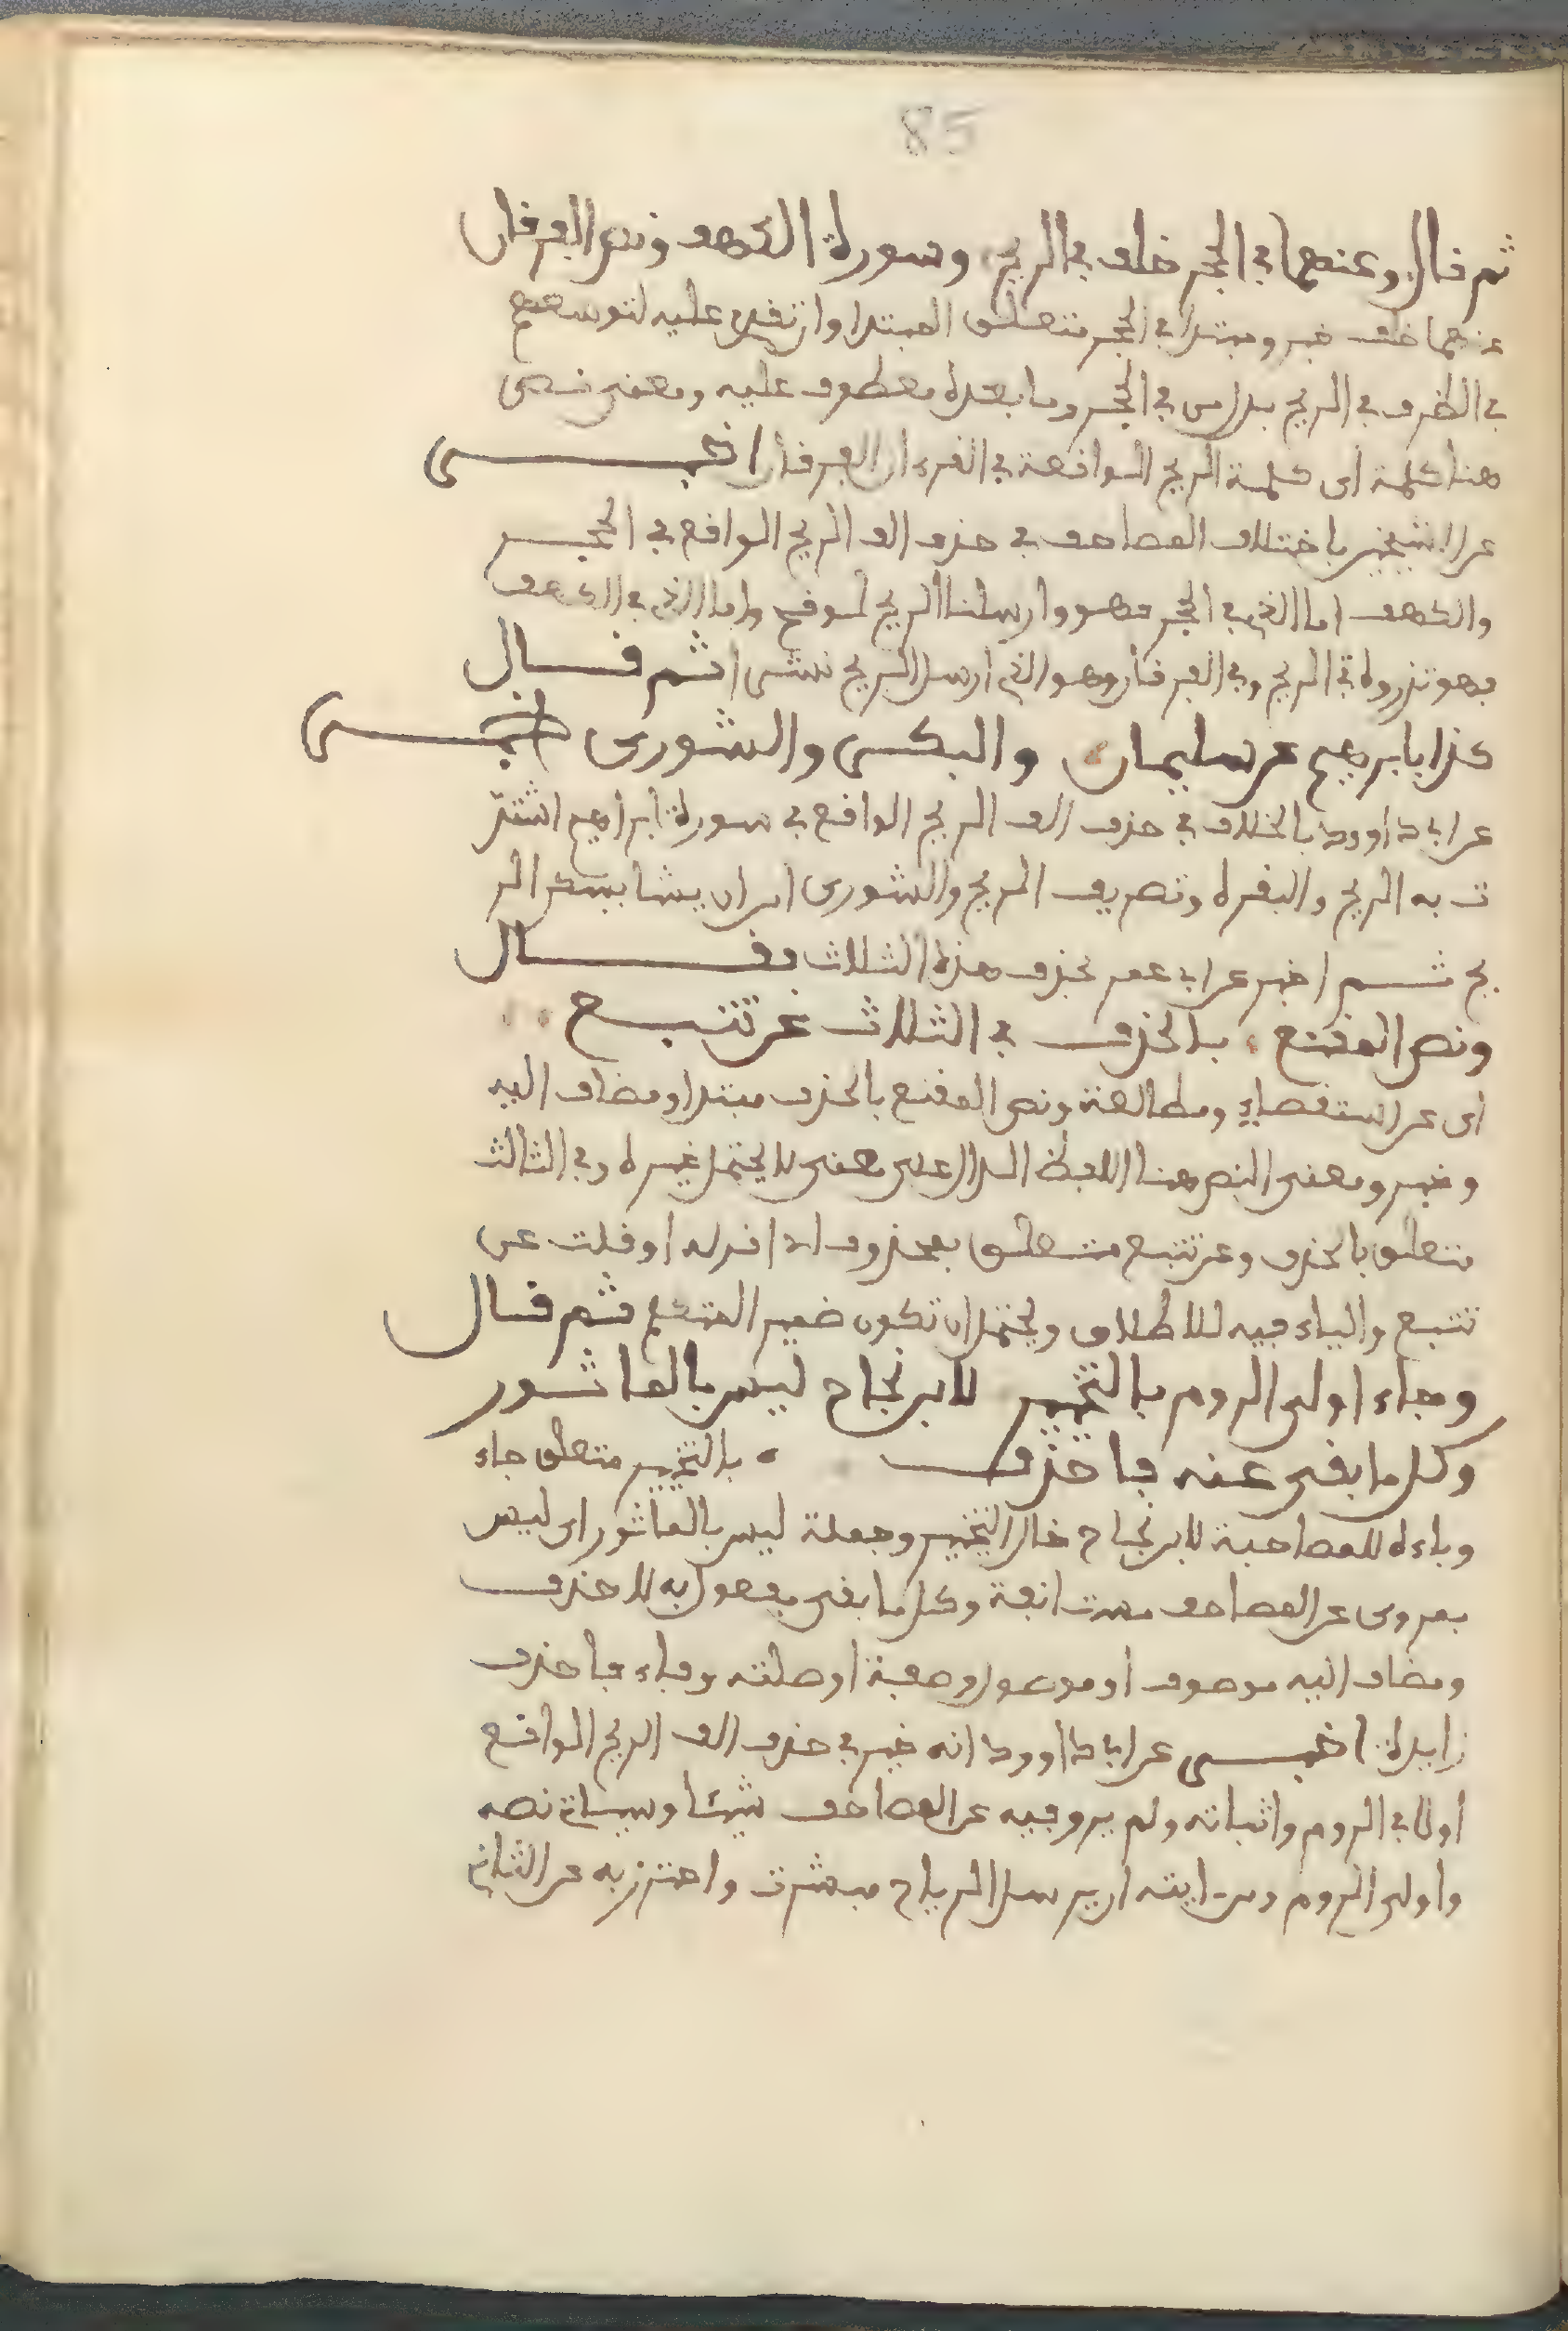 85
ثم قال وعنهما في الحجر خلف في الريح وسورة الكهف ونص الفرقان
عنهما خلف خبر ومبتدا في الحجر متعلق المبتدا وان تقدم عليه لتوسعهم
في الظرف في الريح بدل من في الحجر وما بعده معطوف عليه ومعنى نص
هنا كلمة اى كلمة الريح الواقعة في القرءان الفرقان اخبر
عن الشيخين باختلاف المصاحف في حذف الف الريح الواقع في الحجر
والكهف اما الذي في الحجر فهو وارسلنا الريح لوقح واما الذي في الكهف
فهو تذروه الريح وفي الفرقان وهو الذي ارسل الريح نشرا ثم قال
كذا بابرهيم عن سليمان والبكر والشورى اخبر
عن ابي داوود بالخلاف في حذف الف الريح الواقع في سورة ابراهيم اشتد
ت به الريح والبقرة وتصريف الريح والشورى ان يشا يسكن الر
يح ثم اخبر عن ابي عمر بحذف هذه الثلاث فقال
ونص المقنع بالحذف في الثلاث عن تتبع
اى عن استقصاء ومطالعة ونص المقنع بالحذف مبتدا ومضاف اليه
وخبر ومعنى النص هنا اللفظ الدال على معنى لا يحتمل غيره وفي الثالث
متعلق بالحذف وعن تتبع متعلق بمحذوف اى اقوله او قلت عن
تتبع والياء فيه للاطلاق ويحتمل ان تكون ضمير المتكلم ثم قال
وجاء اولى الروم بالتخيير لابن نجاح ليس بالماثور
وكل ما بقى عنه فاحذف بالتخيير متعلق جاء
وباءه للمصاحبة لابن نجاح حال التخيير وجملة ليس بالماثور اى ليس
بمروى عن المصاحف مستانفة وكل ما بقى مفعول به لاحذف
ومضاف اليه موصوف او موصول وصفة او صلته وفاء فاحذف
زايدة اخبر عن ابي داوود انه خير في حذف الف الريح الواقع
اولا في الروم واثباته ولم يرو فيه عن المصاحف شيئا وسياتي نصه
واولى الروم ومن ايته ان يرسل الرياح مبشرت واحترز به عن الثاني